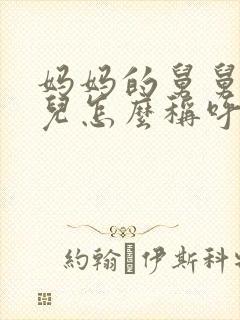 妈妈的舅舅
兒怎麼稱呼
約翰·伊斯科